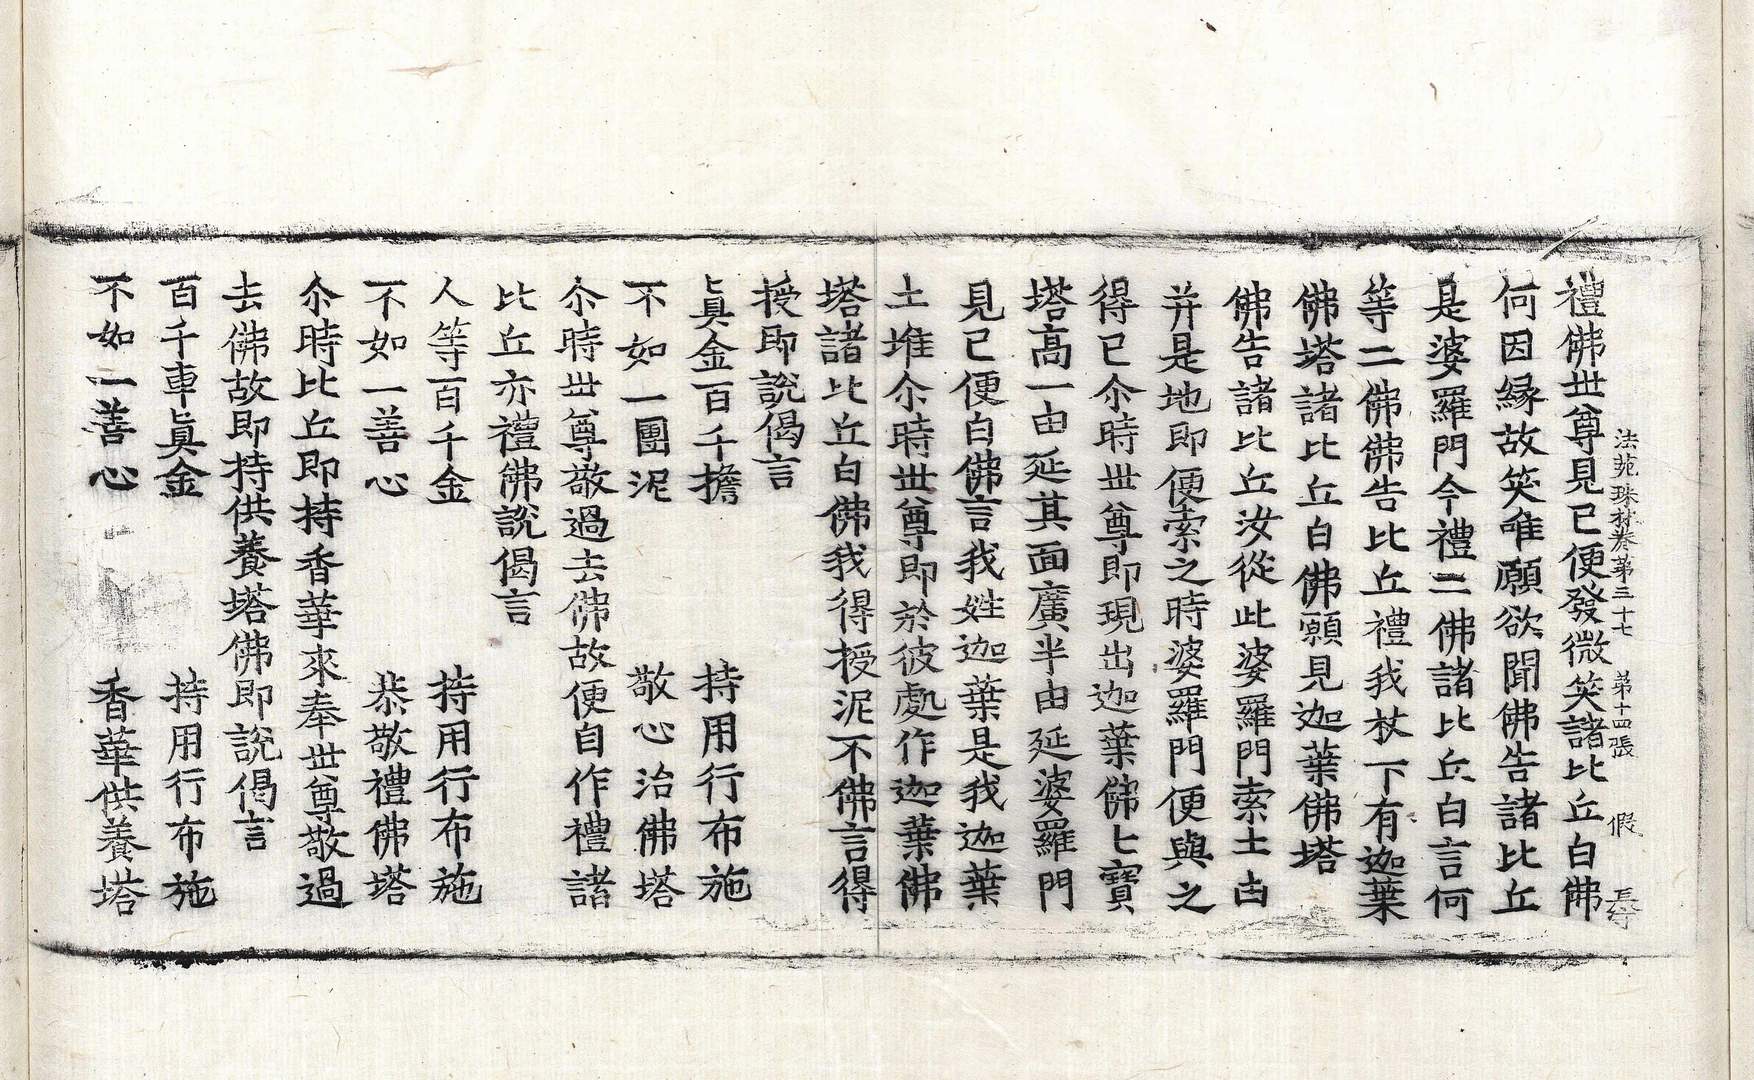 法苑珠林卷第三十七 第十四張 假
禮佛世尊見已便發微笑諸比丘白佛
何因緣故笑唯願欲聞佛告諸比丘
是婆羅門今禮二佛諸比丘白言何
等二佛佛告比丘禮我杖下有迦葉
佛塔諸比丘白佛願見迦葉佛塔
佛告諸比丘汝從此婆羅門索土凷
并是地即便索之時婆羅門便與之
得已尒時世尊即現出迦葉佛七寶
塔高一由延其面廣半由延婆羅門
見已便白佛言我姓迦葉是我迦葉
土堆尒時世尊即於彼處作迦葉佛
塔諸比丘白佛我得授泥不佛言得
授即說偈言
真金百千擔 持用行布施
不如一團泥 敬心治佛塔
尒時世尊敬過去佛故便自作禮諸
比丘亦禮佛說偈言
人等百千金 持用行布施
不如一善心 恭敬禮佛塔
尒時比丘即持香華來奉世尊敬過
去佛故即持供養塔佛即說偈言
百千車真金 持用行布施
不如一善心 香華供養塔